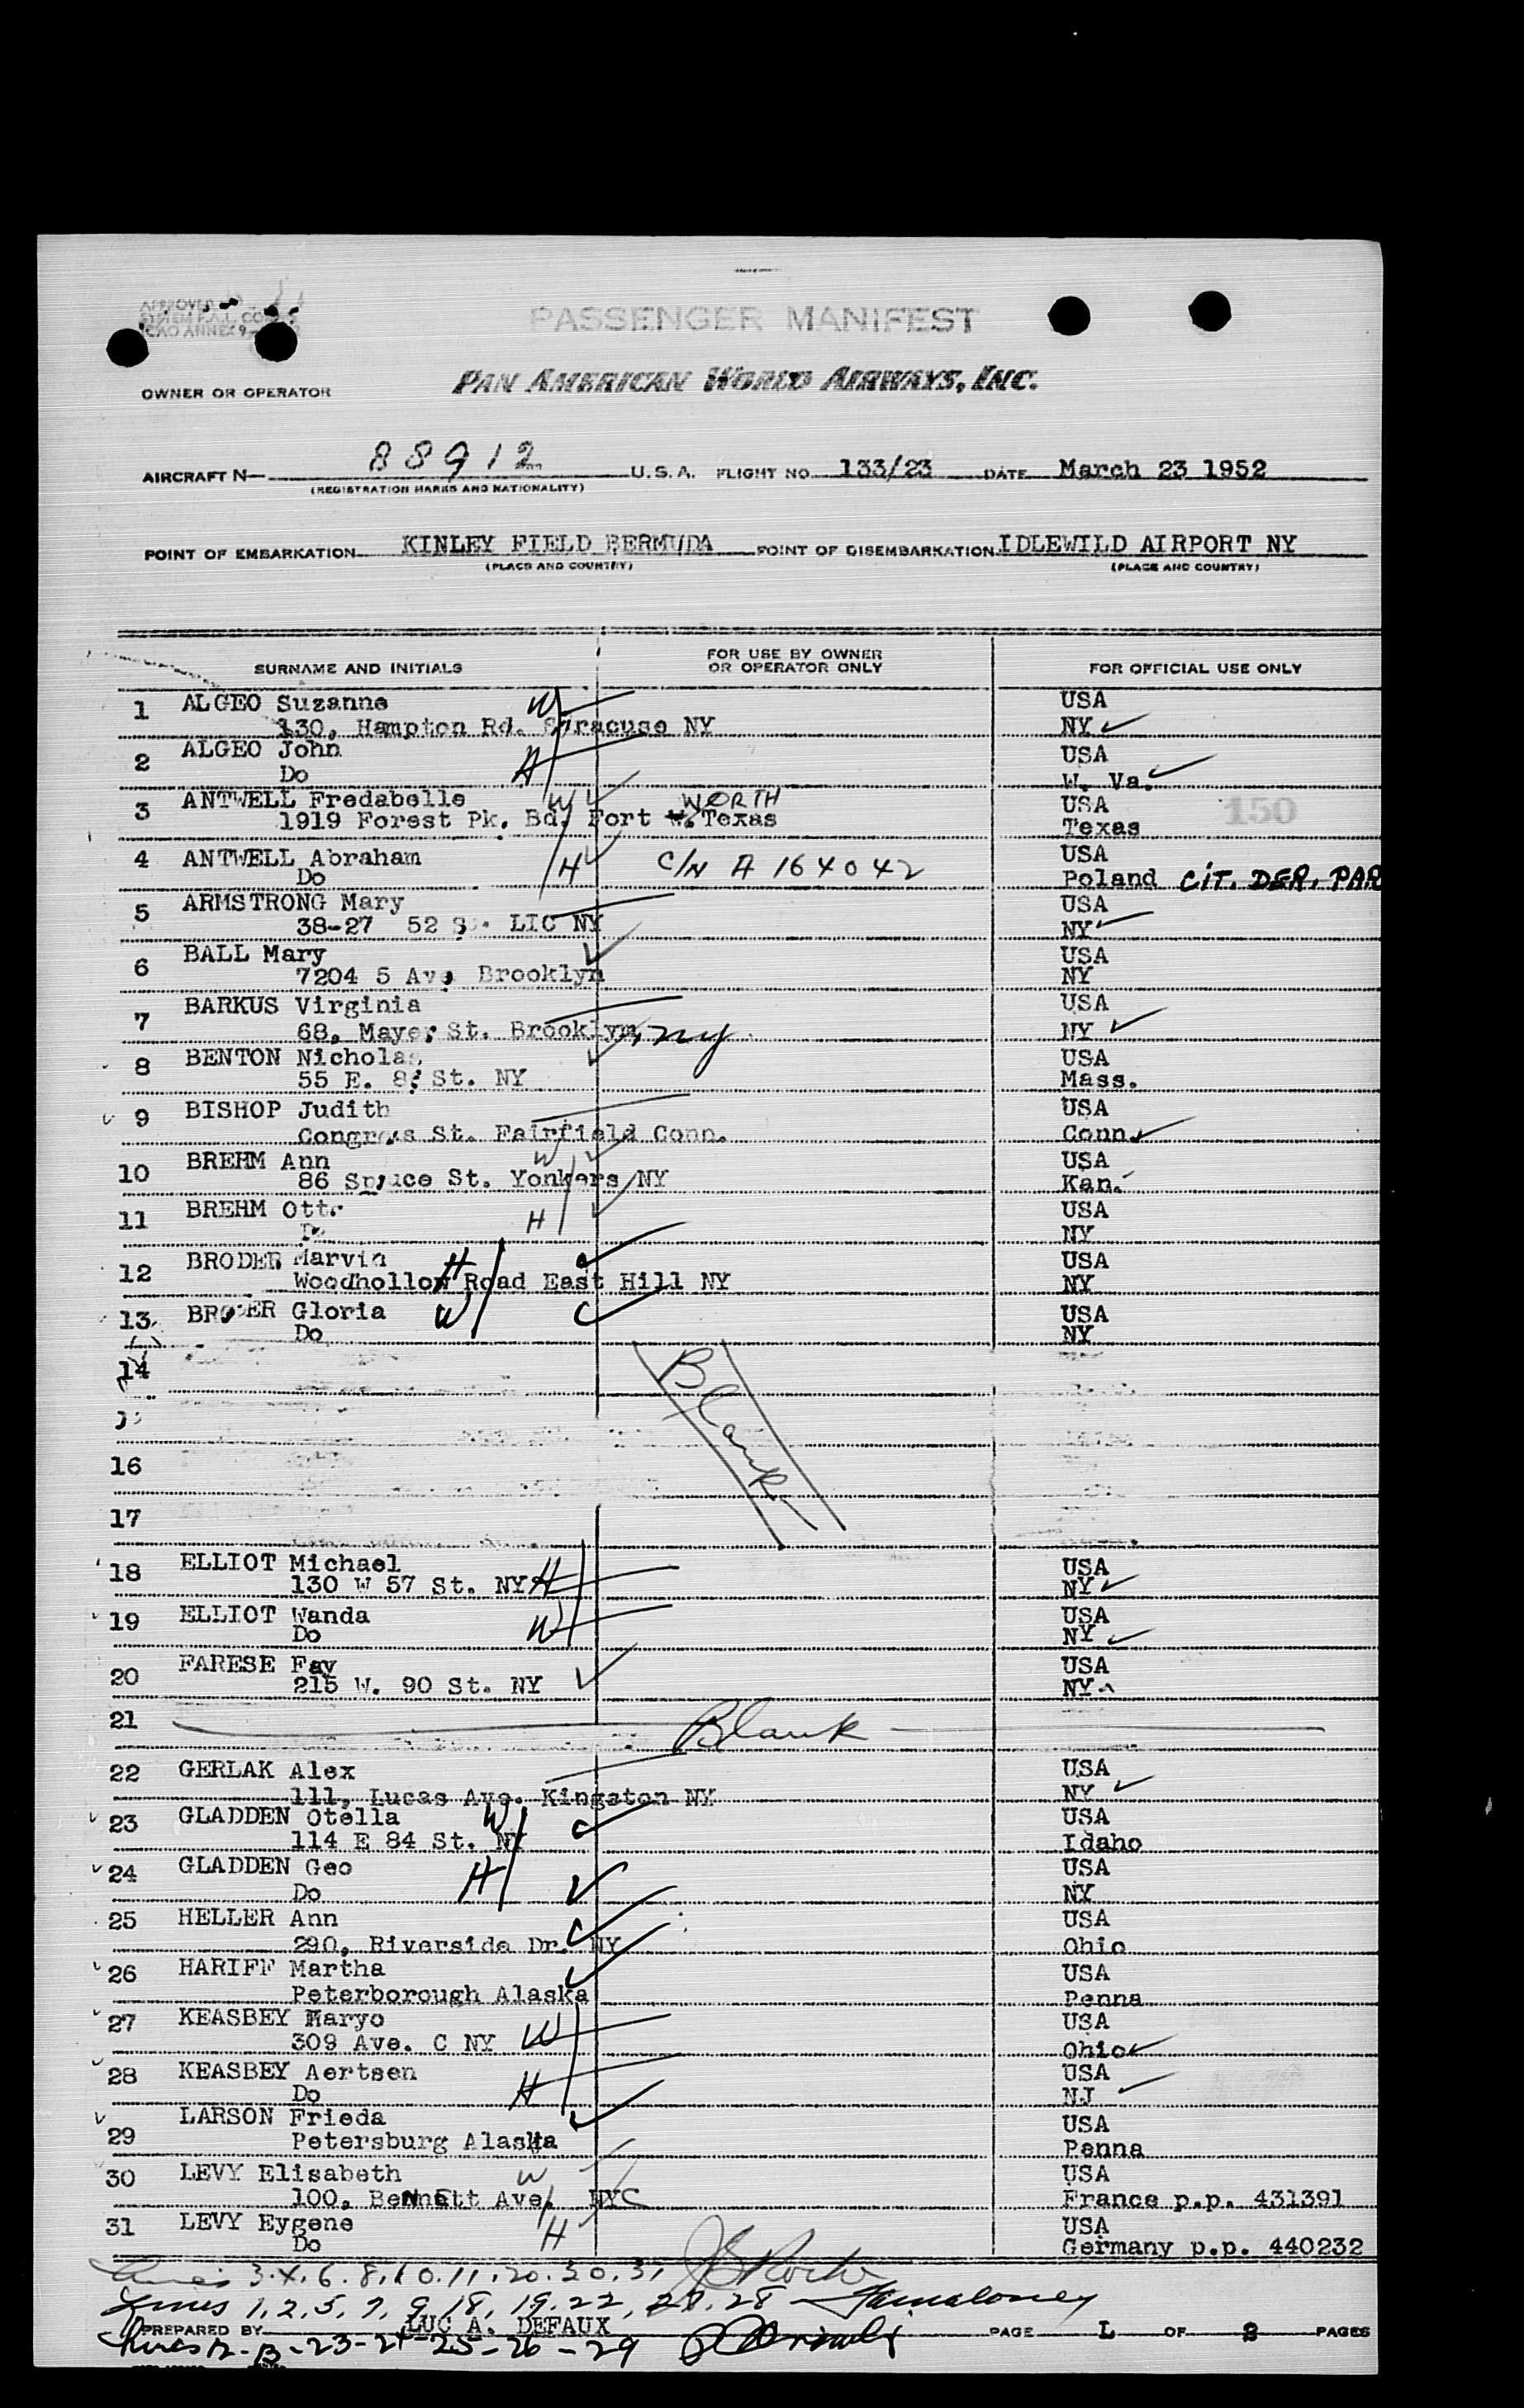 PASSENGER MANIFEST
OWNER OR OPERATOR PAN AMERICAN WORLD AIRWAYS, INC.
AIRCRAFT N 88912 U.S.A. FLIGHT NO. 133/23 DATE March 23 1952
(REGISTRATION MARKS AND NATIONALITY)
POINT OF EMBARKATION KINLEY FIELD BERMUDA POINT OF DISEMBARKATION IDLEWILD AIRPORT NY
(PLACE AND COUNTRY) (PLACE AND COUNTRY)
SURNAME AND INITIALS FOR USE BY OWNER OR OPERATOR ONLY FOR OFFICIAL USE ONLY
1 ALGEO Suzanne W USA
130, Hampton Rd. Syracuse NY NY
2 ALGEO John H USA
Do W. Va.
3 ANTWELL Fredabelle W WORTH USA 150
1919 Forest Pk. Bd, Fort W. Texas Texas
4 ANTWELL Abraham H C/N A 164042 USA
Do Poland CIT. DER. PAR
5 ARMSTRONG Mary USA
38-27 52 St. LIC NY NY
6 BALL Mary USA
7204 5 Ave Brooklyn NY
7 BARKUS Virginia USA
68, Mayer St. Brooklyn, ny NY
8 BENTON Nicholas USA
55 E. 8 St. NY Mass.
9 BISHOP Judith USA
Congress St. Fairfield Conn. Conn.
10 BREHM Ann W USA
86 Spruce St. Yonkers NY Kan.
11 BREHM Otto H USA
Do NY
12 BRODER Marvin H USA
Woodhollow Road East Hill NY NY
13 BRODER Gloria W USA
Do NY
14
Blank
16
17
18 ELLIOT Michael USA
130 W 57 St. NY H NY
19 ELLIOT Wanda W USA
Do NY
20 FARESE Fay USA
215 W. 90 St. NY NY
21 Blank
22 GERLAK Alex USA
111, Lucas Ave. Kingston NY NY
23 GLADDEN Otella W USA
114 E 84 St. NY Idaho
24 GLADDEN Geo H USA
Do NY
25 HELLER Ann USA
290, Riverside Dr. NY Ohio
26 HARIFF Martha USA
Peterborough Alaska Penna
27 KEASBEY Maryo USA
309 Ave. C NY W Ohio
28 KEASBEY Aertsen H USA
Do NJ
29 LARSON Frieda USA
Petersburg Alaska Penna
30 LEVY Elisabeth W USA
100, Bennett Ave. NYC France p.p. 431391
31 LEVY Eygene H USA
Do Germany p.p. 440232
Lines 3.4.6.8.10.11.20.30.31
Lines 1,2,5,7,9,18,19,22,27,28
PREPARED BY LUC A. DEFAUX PAGE 1 OF 2 PAGES
Lines 12-13-23-24-25-26-29